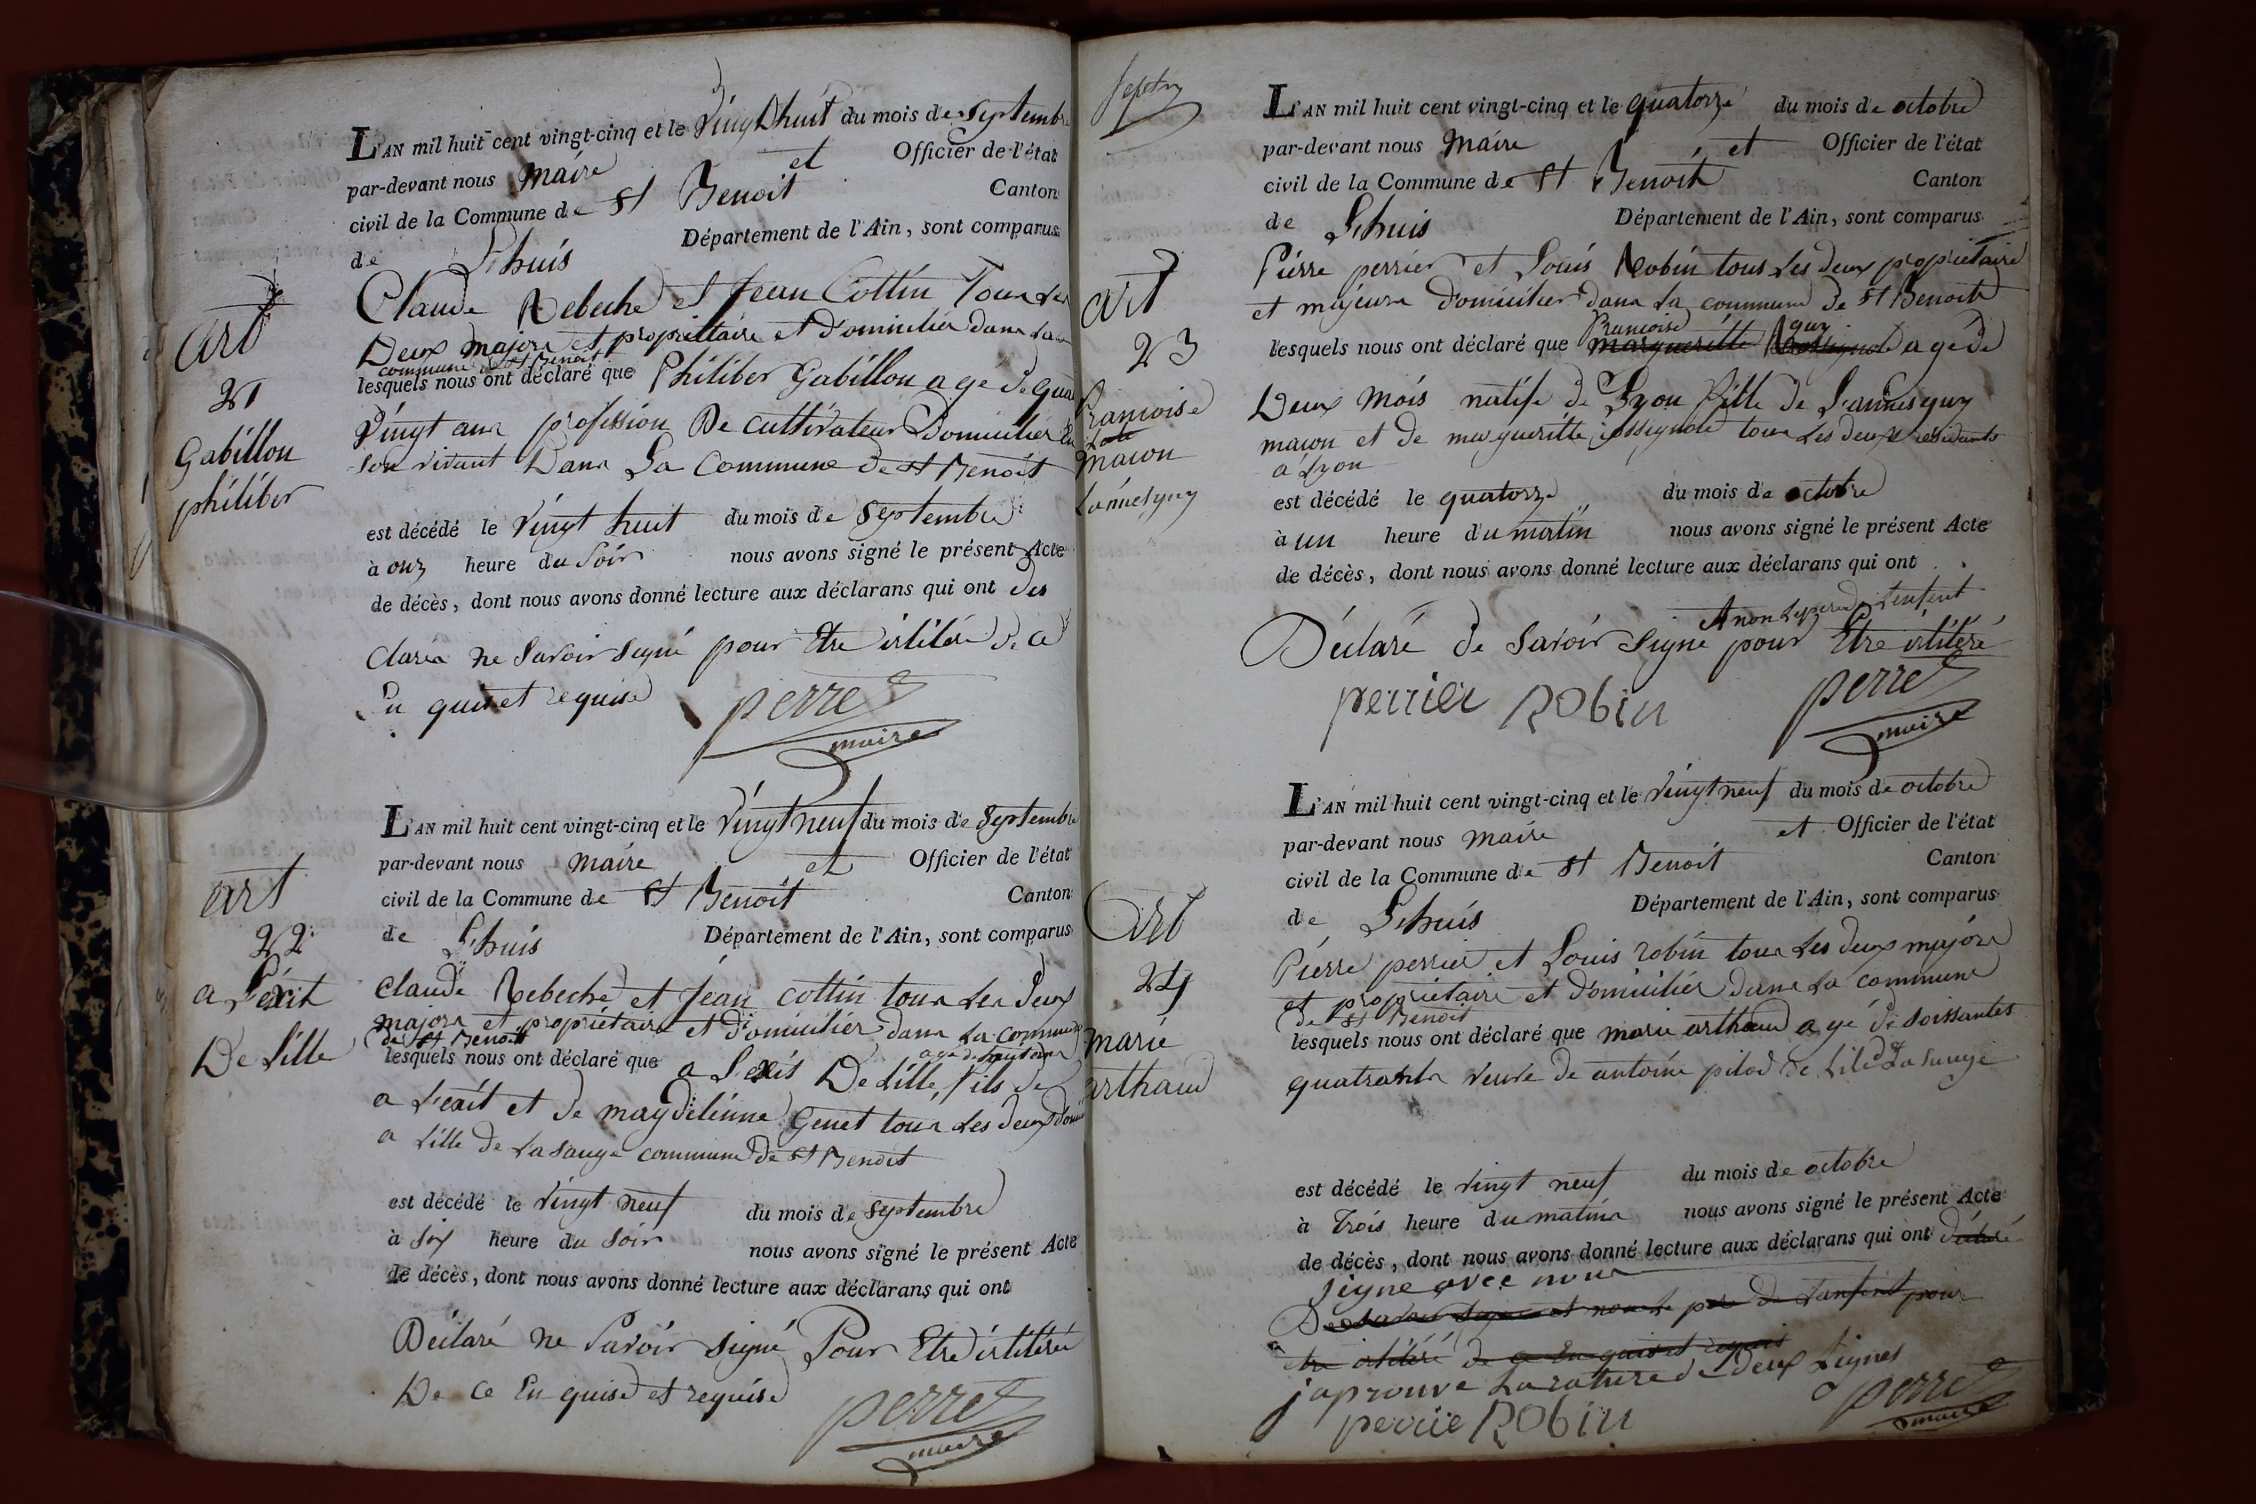 L'AN mil huit cent vingt-cinq et le vingt huit du mois de Septembre
par-devant nous Maire et Officier de l'état
civil de la Commune de St Benoit Canton
de L'huis Département de l'Ain, sont comparus
Claude Rebeche et Jean Cottin Tous Les
Deux majors et proprietaire et Domicilier dans La
commune de St Benoit
lesquels nous ont déclaré que Philiber Gabillon age de qua
Vingt ans profession De cultivateur Domicilier En
son vivant Dans La Commune de St Benoit
est décédé le vingt huit du mois de Septembre
à onz heure du Soir nous avons signé le présent Acte
de décès, dont nous avons donné lecture aux déclarans qui ont des
clarés ne Savoir signé pour Etre istitéré de ce
En quis et requise
perret
maire
art
21
Gabillon
philiber
L'AN mil huit cent vingt-cinq et le Vingt neuf du mois de Septembre
par-devant nous maire et Officier de l'état
civil de la Commune de St Benoit Canton
de L'huis Département de l'Ain, sont comparus
Claude Rebeche et Jean Cottin tous Les deux
majors et propriétaire et domicilier dans La commune
de St Benoit
lesquels nous ont déclaré que a Lexis De Lille, fils de
age de
a Lexit et de magdelenne Genet tous Les deux dom
a Lille de La Sauge commune De St Benoit
est décédé le Vingt neuf du mois de Septembre
à six heure du Soir nous avons signé le présent Acte
de décès, dont nous avons donné lecture aux déclarans qui ont
Déclaré ne Savoir signé Pour Etre istitérée
De Ce En quise et requise
perret
maire
art
22
a Lexit
De Lille
Septbr
L'AN mil huit cent vingt-cinq et le quatorze du mois de octobre
par-devant nous Maire et Officier de l'état
civil de la Commune de St Benoit Canton
de L'huis Département de l'Ain, sont comparus
Pierre perrier et Louis Robin tous Les deux propriétaire
et majeurs Domicilier Dans La commune De St Benoit
Francoise guy
lesquels nous ont déclaré que margueritte Rossignole agé de
Deux Mois natife de Lyon fille de Lannes guy
macon et de margueritte rossignole tous Les deux résidants
a Lyon
est décédé le quatorze du mois de octobre
à un heure du matin nous avons signé le présent Acte
de décès, dont nous avons donné lecture aux déclarans qui ont
A non Le pere de L'enfent
Déclaré de Savoir Signe pour Etre istitéré
perrier Robin perret
maire
art
23
francoise
macon
Lannes guy
L'AN mil huit cent vingt-cinq et le Vingt neuf du mois de octobre
par-devant nous maire et Officier de l'état
civil de la Commune de St Benoit Canton
de L'huis Département de l'Ain, sont comparus
Pierre perrier et Louis robin tous Les deux majors
et proprietaire et Domicilier dans La commune
de St Benoit
lesquels nous ont déclaré que marie arthaud agé de soissantes
quatrants veuve de antoine pilod de Lile de La Sauge
est décédé le vingt neuf du mois de octobre
à Trois heure du matins nous avons signé le présent Acte
de décès, dont nous avons donné lecture aux déclarans qui ont déclaré
signe avec nous
De Savoir Signe et non Le per de L'anfent pour
etre istitéré de ce En quis et requis
j aprouve La rature de Deux Lignes
perrie Robin perret
maire
Art
24
marie
arthaud